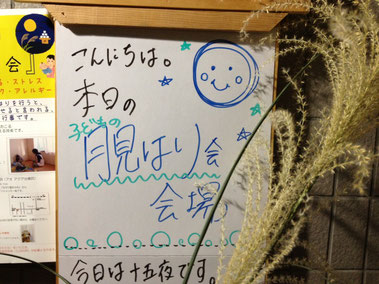 こんにちは。
本日の
子どもの
月見はり会
会場
今日は十五夜です。
会』
ストレス
ク・アレルギー
はりを行うと、
せると言われる、
行事です。